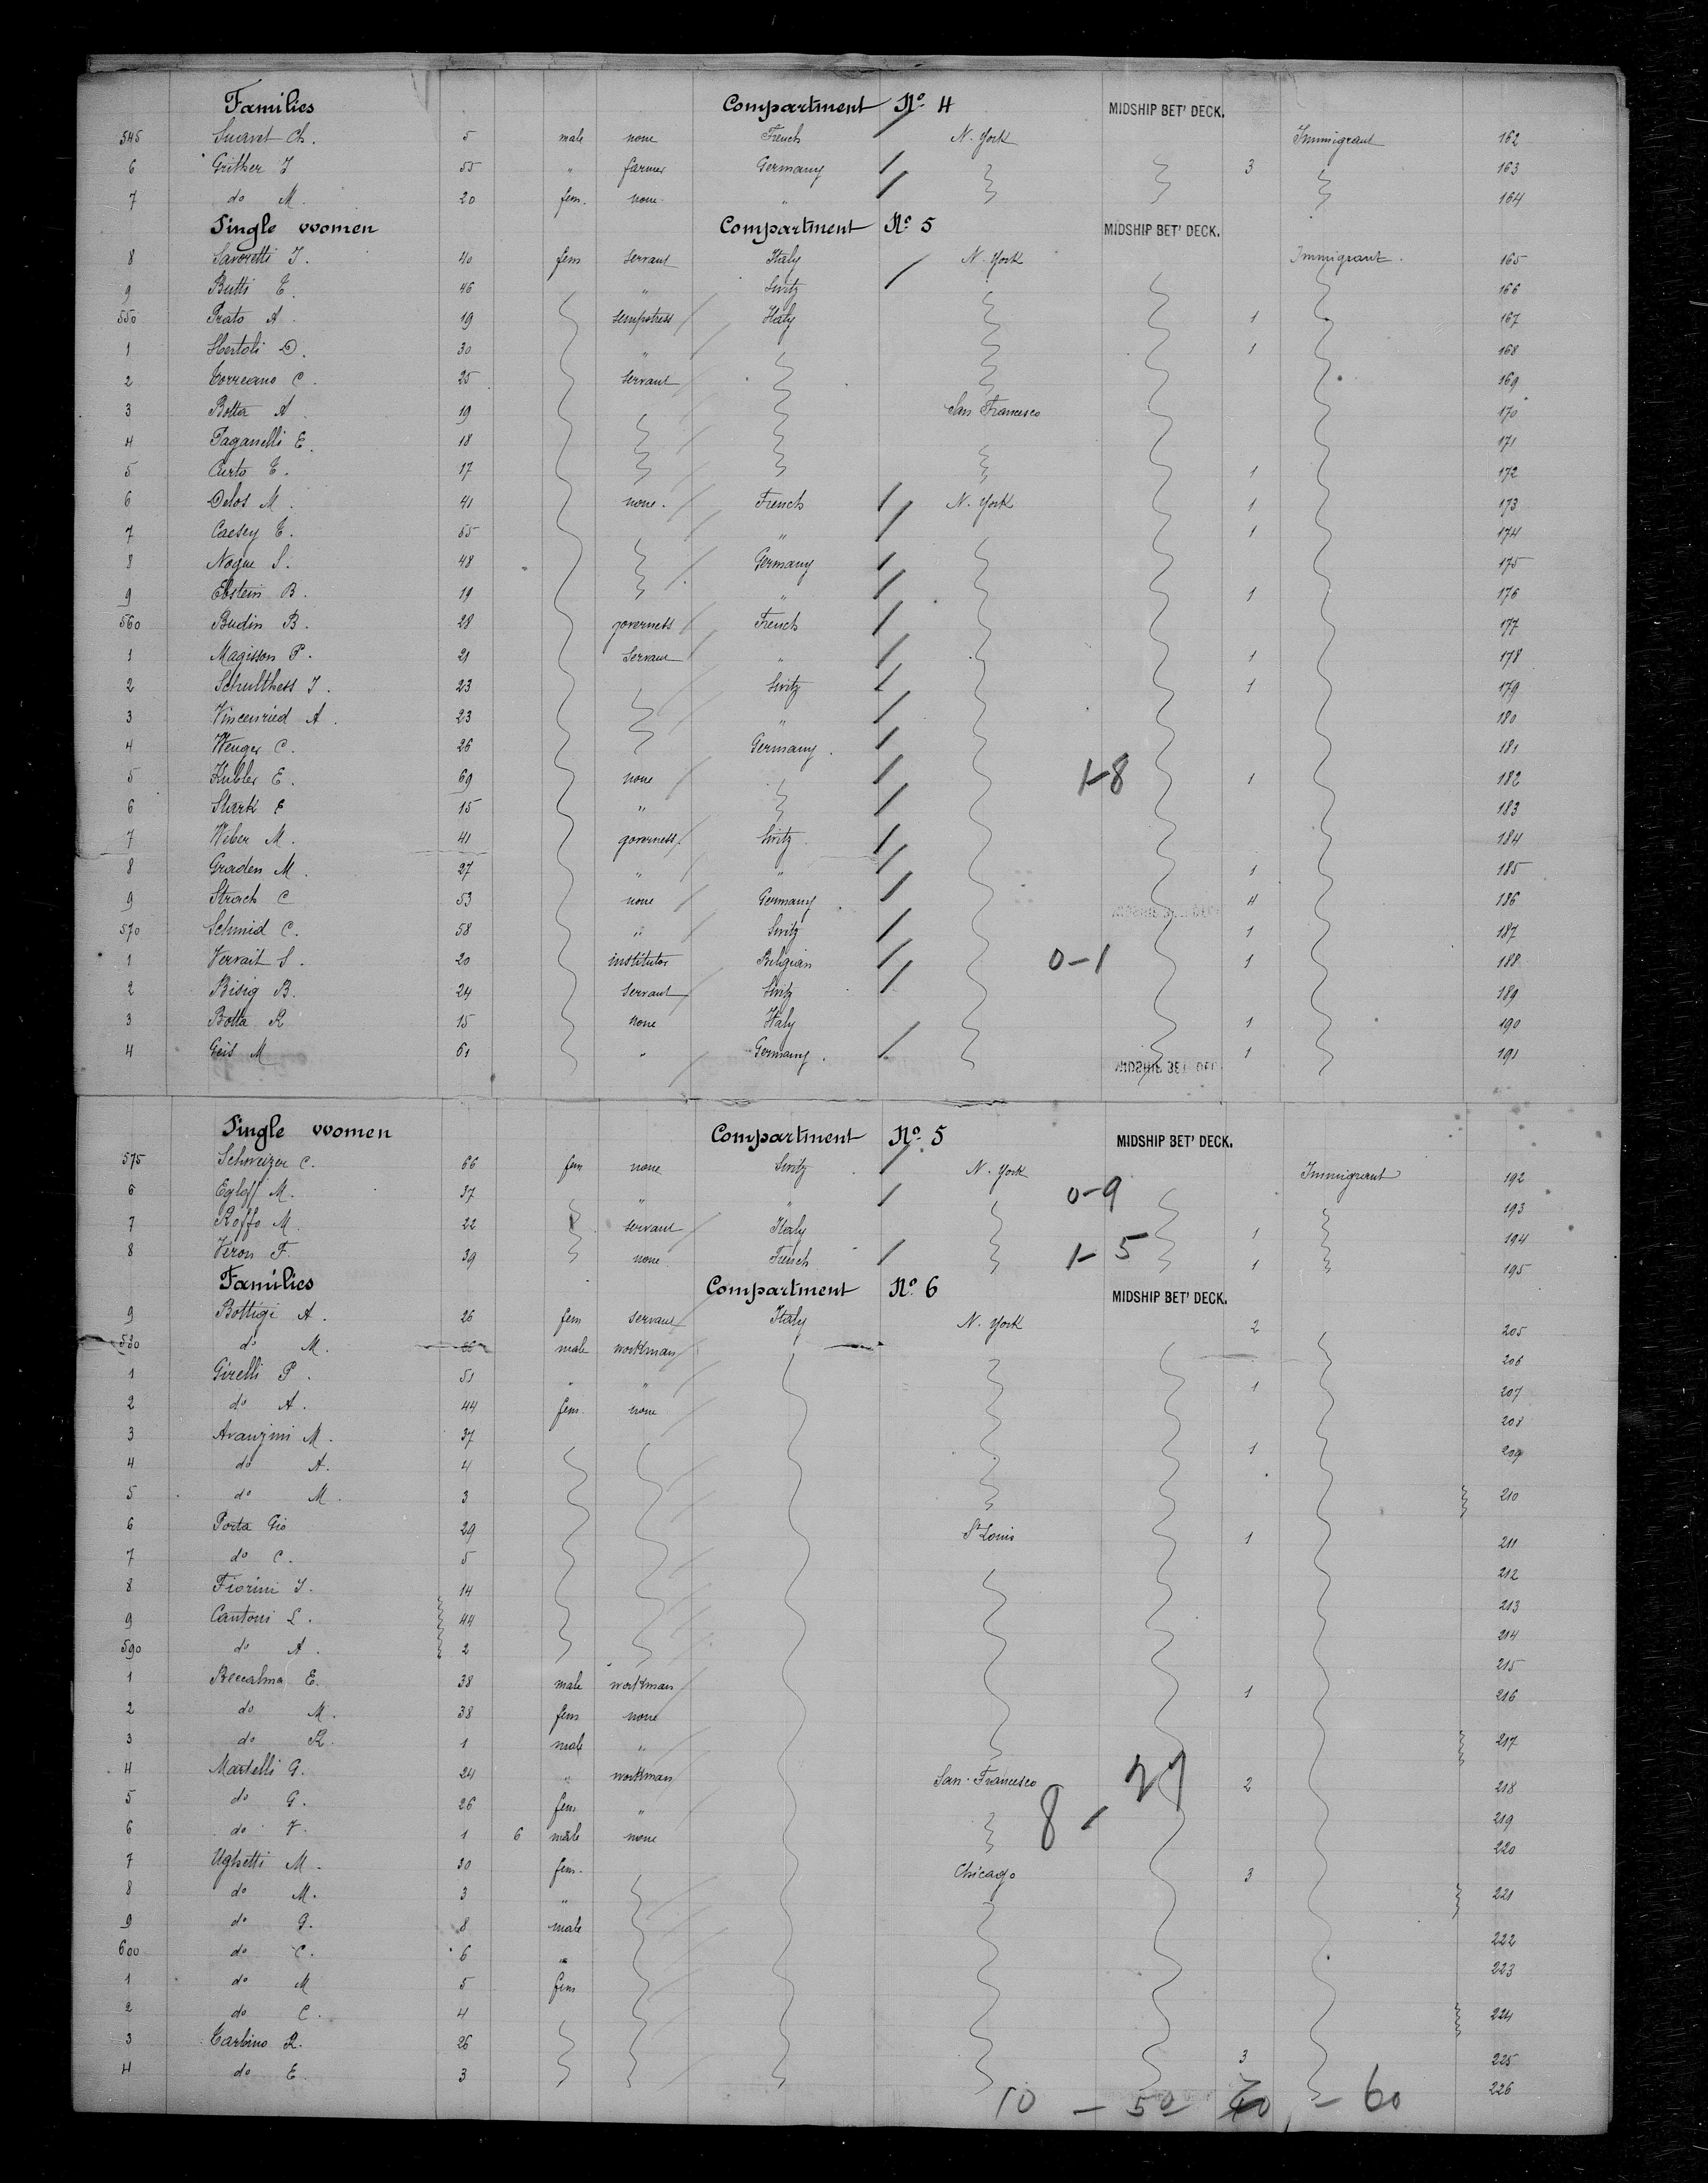 Families Compartment No. 4 MIDSHIP BET' DECK.
545 Suaret Ch. 5 male none French N. York Immigrant 162
6 Grither J 55 " farmer Germany 3 163
7 do M. 20 fem. none " 164
Single women Compartment No. 5 MIDSHIP BET' DECK.
8 Savoretti J. 40 fem servant Italy N. York Immigrant. 165
9 Butti E. 46 " Switz 166
550 Prato A. 19 sempstress Italy 1 167
1 Bertoli D. 30 " 1 168
2 Correano C. 25 servant 169
3 Botta A 19 San Francesco 170
4 Paganelli E. 18 171
5 Curto E. 17 1 172
6 Delos M. 41 none. French N. York 1 173
7 Caesey E. 65 " 1 174
8 Nogue S. 48 Germany 175
9 Ebstein B. 19 " 1 176
560 Budin B. 28 governess French 177
1 Magisson P. 21 Servant " 1 178
2 Schulthess J. 23 Switz 1 179
3 Vincenried A. 23 " 180
4 Wenger C. 26 Germany. 181
5 Kubler E. 69 none 1-8 1 182
6 Stark E 15 " 183
7 Weber M. 41 governess Switz 184
8 Graden M. 27 " " 1 185
9 Strach C 53 none Germany 4 186
570 Schmid C. 58 " Switz 1 187
1 Vervait S. 20 institutor Belgian 0-1 1 188
2 Bisig B. 24 servant Switz 189
3 Botta R 15 none Italy 1 190
4 Geis M 61 " Germany. 1 191
Single women Compartment No. 5 MIDSHIP BET' DECK.
575 Schweizer C. 66 fem none Switz N. York Immigrant 192
6 Egloff M. 37 " " 0-9 193
7 Roffo M. 22 servant Italy 1 194
8 Veron F. 39 none French 1-5 1 195
Families Compartment No. 6 MIDSHIP BET' DECK.
9 Bottigi A. 26 fem servant Italy N. York 2 205
580 do M. male workman 206
1 Girelli P. 51 " " 1 207
2 do A. 44 fem. none 208
3 Avanzini M. 37 1 209
4 do A. 4
5 do M. 3 210
6 Porta Gio 29 St Louis 1 211
7 do C. 5 212
8 Fiorini J. 14 213
9 Cantoni L. 44 214
590 do A. 2 215
1 Beccalma E. 38 male workman 1 216
2 do M. 38 fem none
3 do R. 1 male " 217
4 Martelli G. 24 " workman San Francesco 2 218
5 do G. 26 fem " 8 - 27 219
6 do V. 1 6 male none 220
7 Ughetti M. 30 fem. Chicago 3
8 do M. 3 " 221
9 do G. 8 male 222
600 do C. 6 " 223
1 do M 5 fem
2 do C. 4 224
3 Carbino R. 26 3 225
4 do E. 3 226
10 - 50 - 60